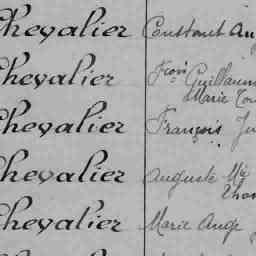 Chevalier Constant Aug
Chevalier Frçois Guillaume
Marie
Chevalier François Ju
Chevalier Auguste
Chevalier Marie Ange